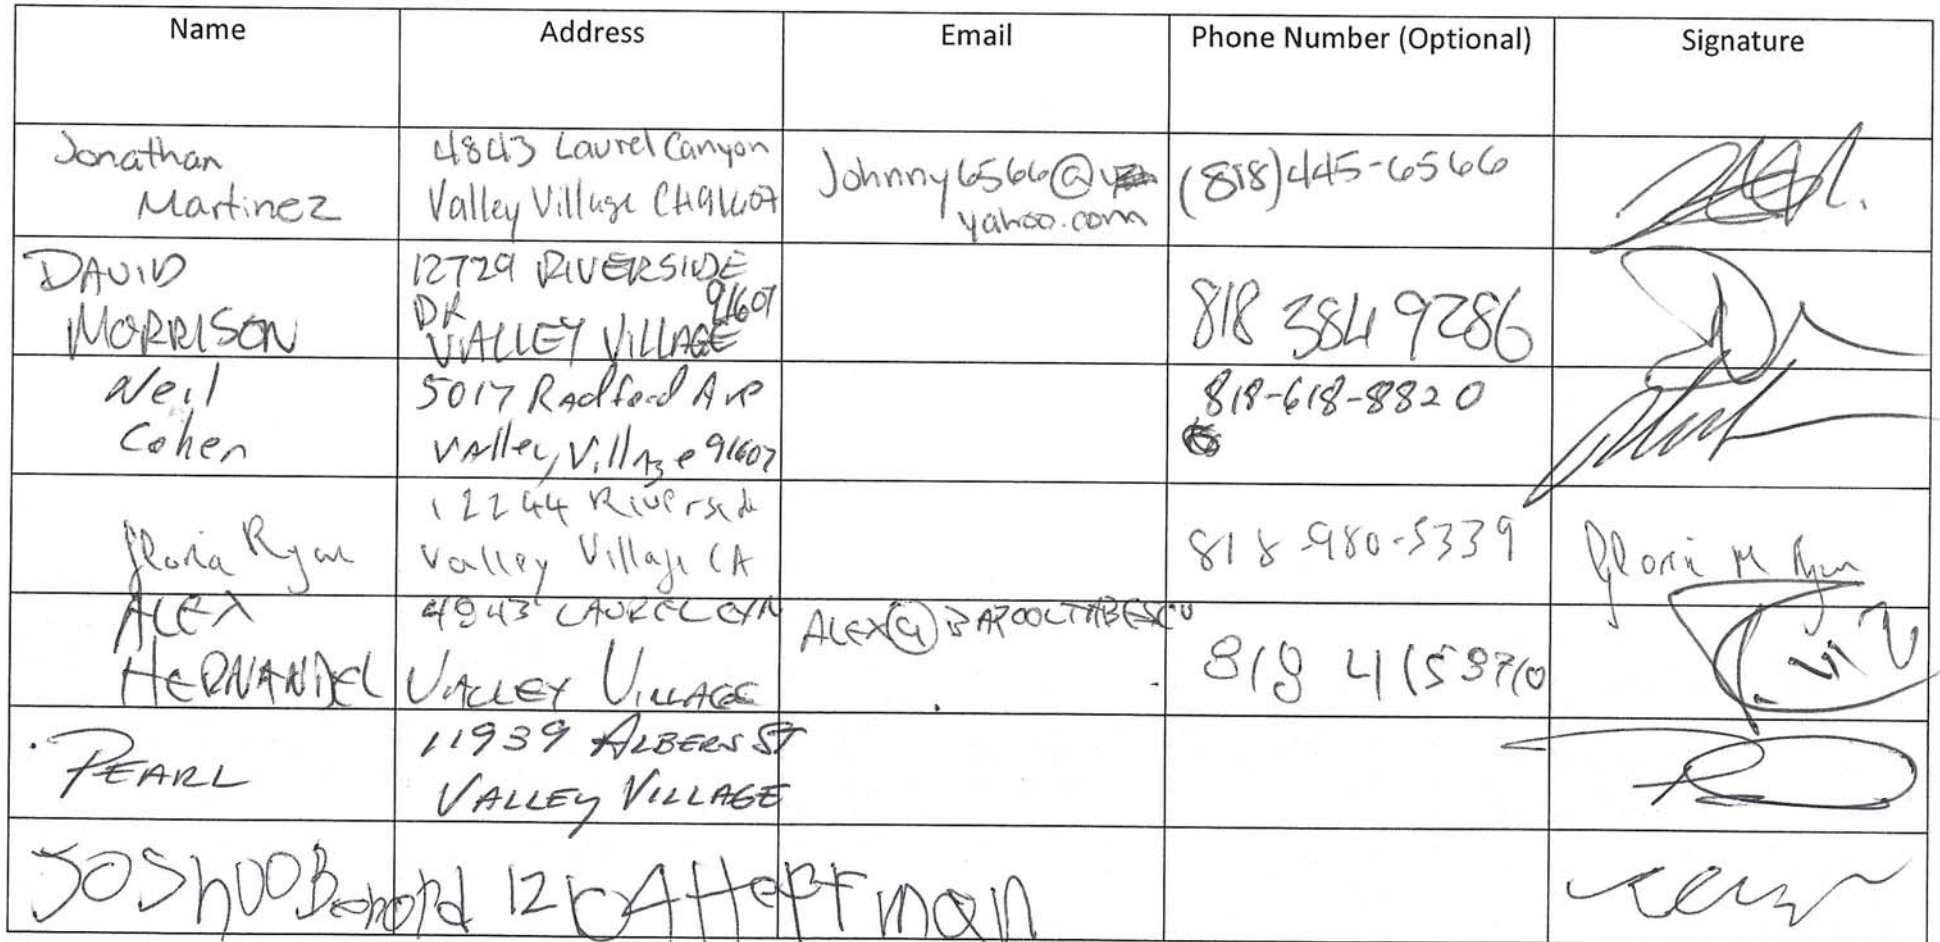 Name Address Email Phone Number (Optional) Signature
Jonathan
Martinez
4843 Laurel Canyon
Valley Village CA 91607
Johnny6566@
yahoo.com
(818)445-6566
DAVID
MORRISON
12729 RIVERSIDE
DR 91607
VALLEY VILLAGE
818 384 9286
Neil
Cohen
5017 Radford Ave
Valley Village 91607
818-618-8820
Gloria Ryan
12244 Riverside
Valley Village CA
818-980-5339
Gloria M Ryan
ALEX
HERNANDEZ
4943 LAUREL CYN
VALLEY VILLAGE
ALEX@
818 4158710
PEARL
11939 ALBERS ST
VALLEY VILLAGE
Joshua